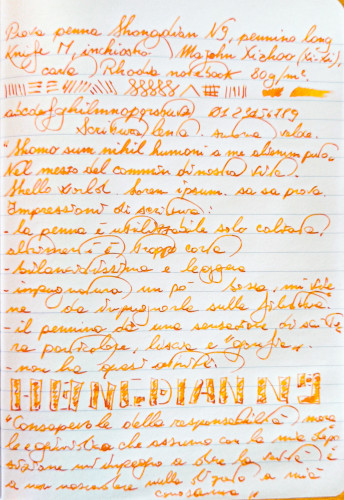 Prova penna Shongdian N9, pennino long
Knife M, inchiostro Majohn Xizhao (Xi-Xi),
carta Rhodia notebook 80g/m².
abcdefghilmnopqrstuvz 0123456789
Scrittura lenta subina veloce.
"Homo sum nihil humani a me alienum puto.
Nel mezzo del cammin di nostra vita.
Hello World lorem ipsum. sa sa prova.
Impressioni di scrittura:
- la penna è utilizzabile solo calzata,
altrimenti è troppo corta
- bilanciatissima e leggera
- impugnatura un po' bassa, mi vie
ne da impugnarla sulla filettatura.
- il pennino dà una sensazione di scrittu
ra particolare, liscia e "gonfia"
- non ha quasi attriti
SHENGDIAN N9
"Consapevole della responsabilità mora
le e giuridica che assumo con la mia depo
sizione mi impegno a dire la verità e
a non nascondere nulla di quanto a mia
conoscenza"